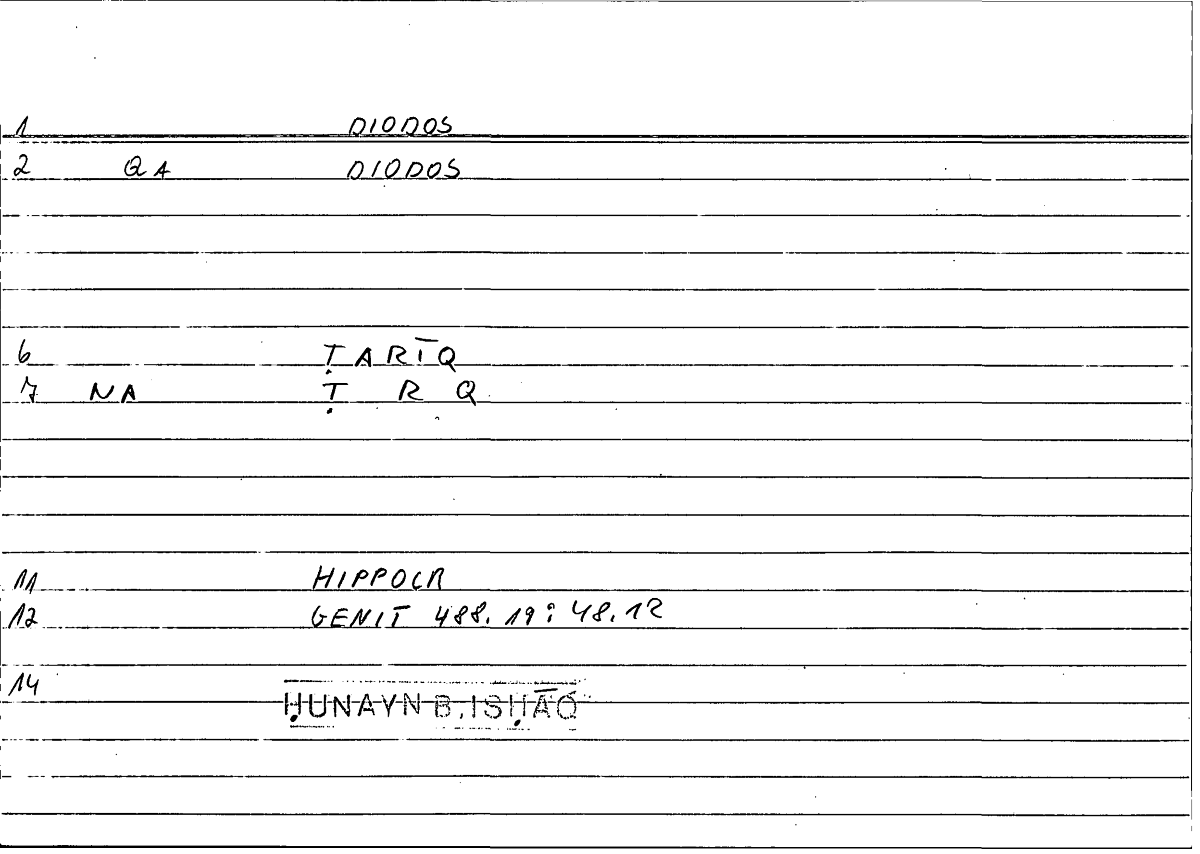 1 DIODOS
2 QA DIODOS
6 ṬARĪQ
7 NA Ṭ R Q
11 HIPPOCR
12 GENIT 488. 19 : 48. 12
14 ḤUNAYN B. ISḤĀQ